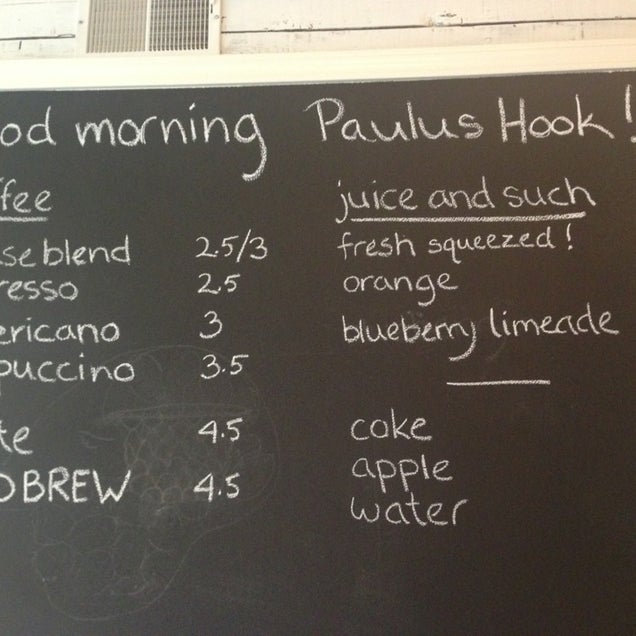 od morning Paulus Hook!
fee
se blend 2.5/3
resso 2.5
ericano 3
puccino 3.5
te 4.5
OBREW 4.5
juice and such
fresh squeezed!
orange
blueberry limeade
coke
apple
water